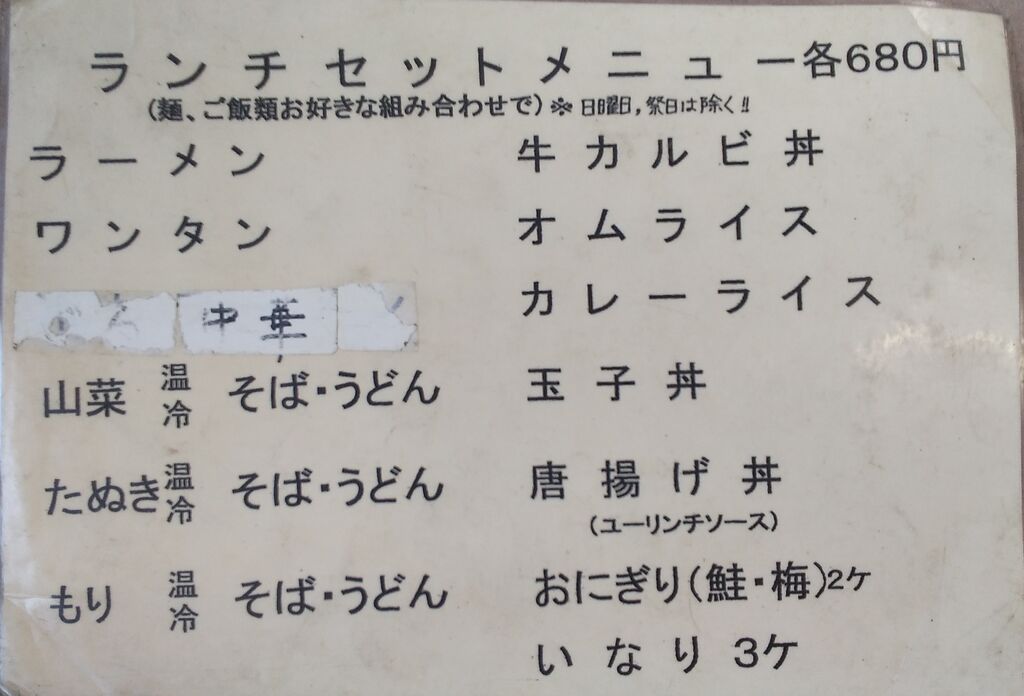 ランチセットメニュー各680円
(麺、ご飯類お好きな組み合わせで)※日曜日,祭日は除く!!
ラーメン
ワンタン
中華
山菜 温冷 そば・うどん
たぬき 温冷 そば・うどん
もり 温冷 そば・うどん
牛カルビ丼
オムライス
カレーライス
玉子丼
唐揚げ丼
(ユーリンチソース)
おにぎり(鮭・梅)2ケ
いなり3ケ